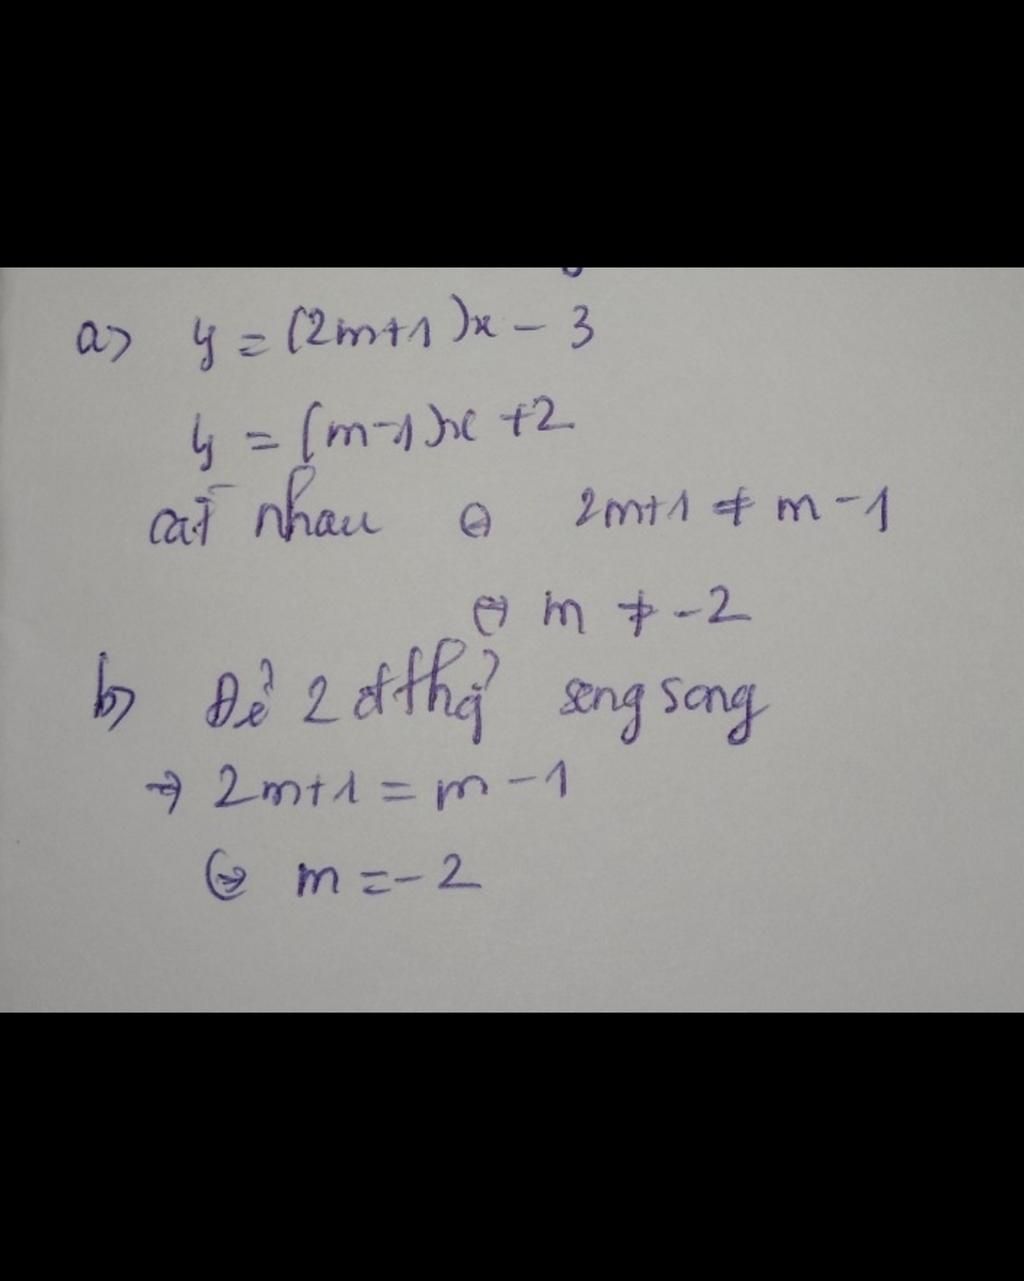 a) y = (2m+1)x - 3
y = (m-1)x + 2
cắt nhau ⇔ 2m+1 ≠ m-1
⇔ m ≠ -2
b) Để 2 đthị song song
⇒ 2m+1 = m-1
⇔ m = -2